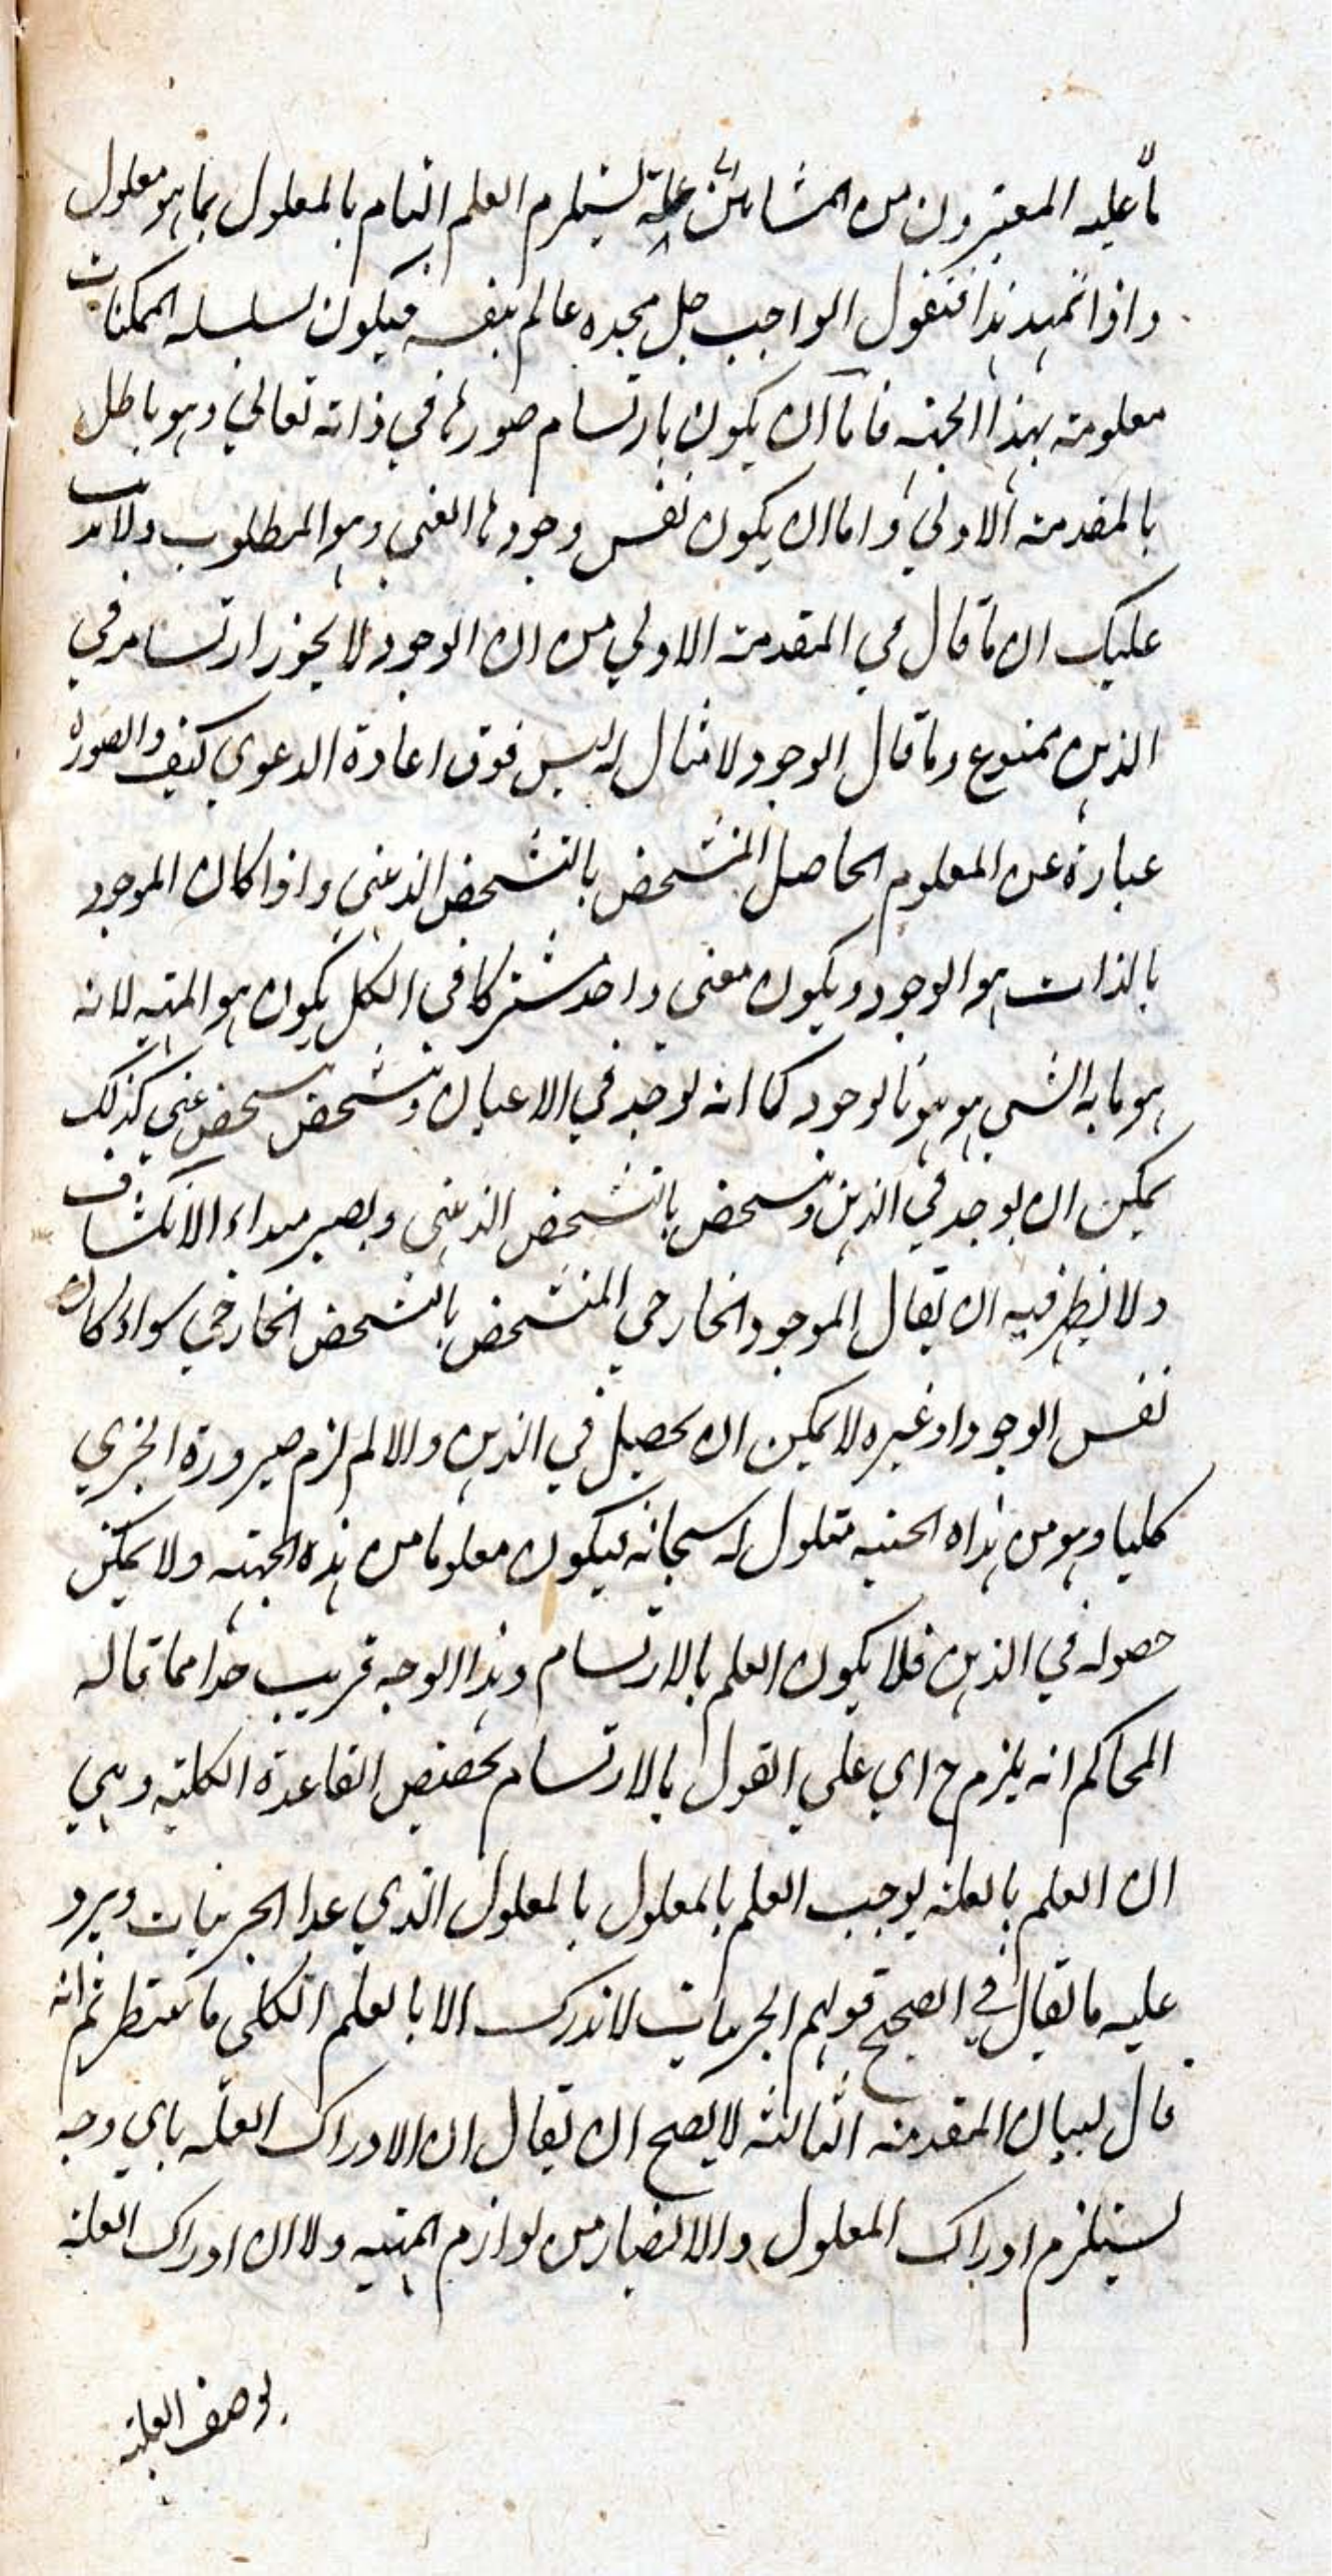 ما عليه المعتبرون من المشائين علته يستلزم العلم التام بالمعلول بما هو معلول
واذا تمهد هذا فنقول الواجب جل مجده عالم بنفسه فيكون لسلسله الممكنات
معلومة بهذا الجهة فاما ان يكون بارتسام صورها في ذاته تعالي وهو باطل
بالمقدمة الاولي واما ان يكون نفس وجودها العيني وهو المطلوب ولا يذهب
عليك ان ما قال في المقدمة الاولي من ان الوجود لا يجوز ارتسامه في
الذهن ممنوع وما قال الوجود لا مثال له ليس فوق اعادة الدعوي كيف والصورة
عبارة عن المعلوم الحاصل المتشخص بالتشخص الذهني واذا كان الموجود
بالذات هو الوجود ويكون معني واحد مشتركا في الكل يكون هو المهية لانه
هو ما به الشي هو هو فالوجود كما انه يوجد في الاعيان وتشخص بتشخص عيني كذلك
يمكن ان يوجد في الذهن وتشخص بالتشخص الذهني ويصير مبداء الانكشاف
ولا ينظر فيه ان يقال الموجود الخارجي المتشخص بالتشخص الخارجي سواء كان
نفس الوجود او غيره لا يمكن ان يحصل في الذهن والا لم لزم صيرورة الجزي
كليا وهو من هذاه الحثية معلول له سبحانه فيكون معلوما من هذه الجهته ولا يمكن
حصوله في الذهن فلا يكون العلم بالارتسام وهذا الوجه قريب جدا مما قاله
المحاكم انه يلزم ح اي علي القول بالارتسام تخصيص القاعدة الكلية وهي
ان العلم بالعلة يوجب العلم بالمعلول بالمعلول الذي عدا الجزئيات ويرد
عليه ما يقال في الصحيح قولهم الجزئيات لا تدرك الا بالعلم الكلي ما ثم انه
قال لبيان المقدمة الثالثة لا يصح ان يقال ان الادراك العلة باي وجه
يستلزم ادراك المعلول والا لصار من لوازم المهية ولا ان ادراك العلة
بوصف العلية